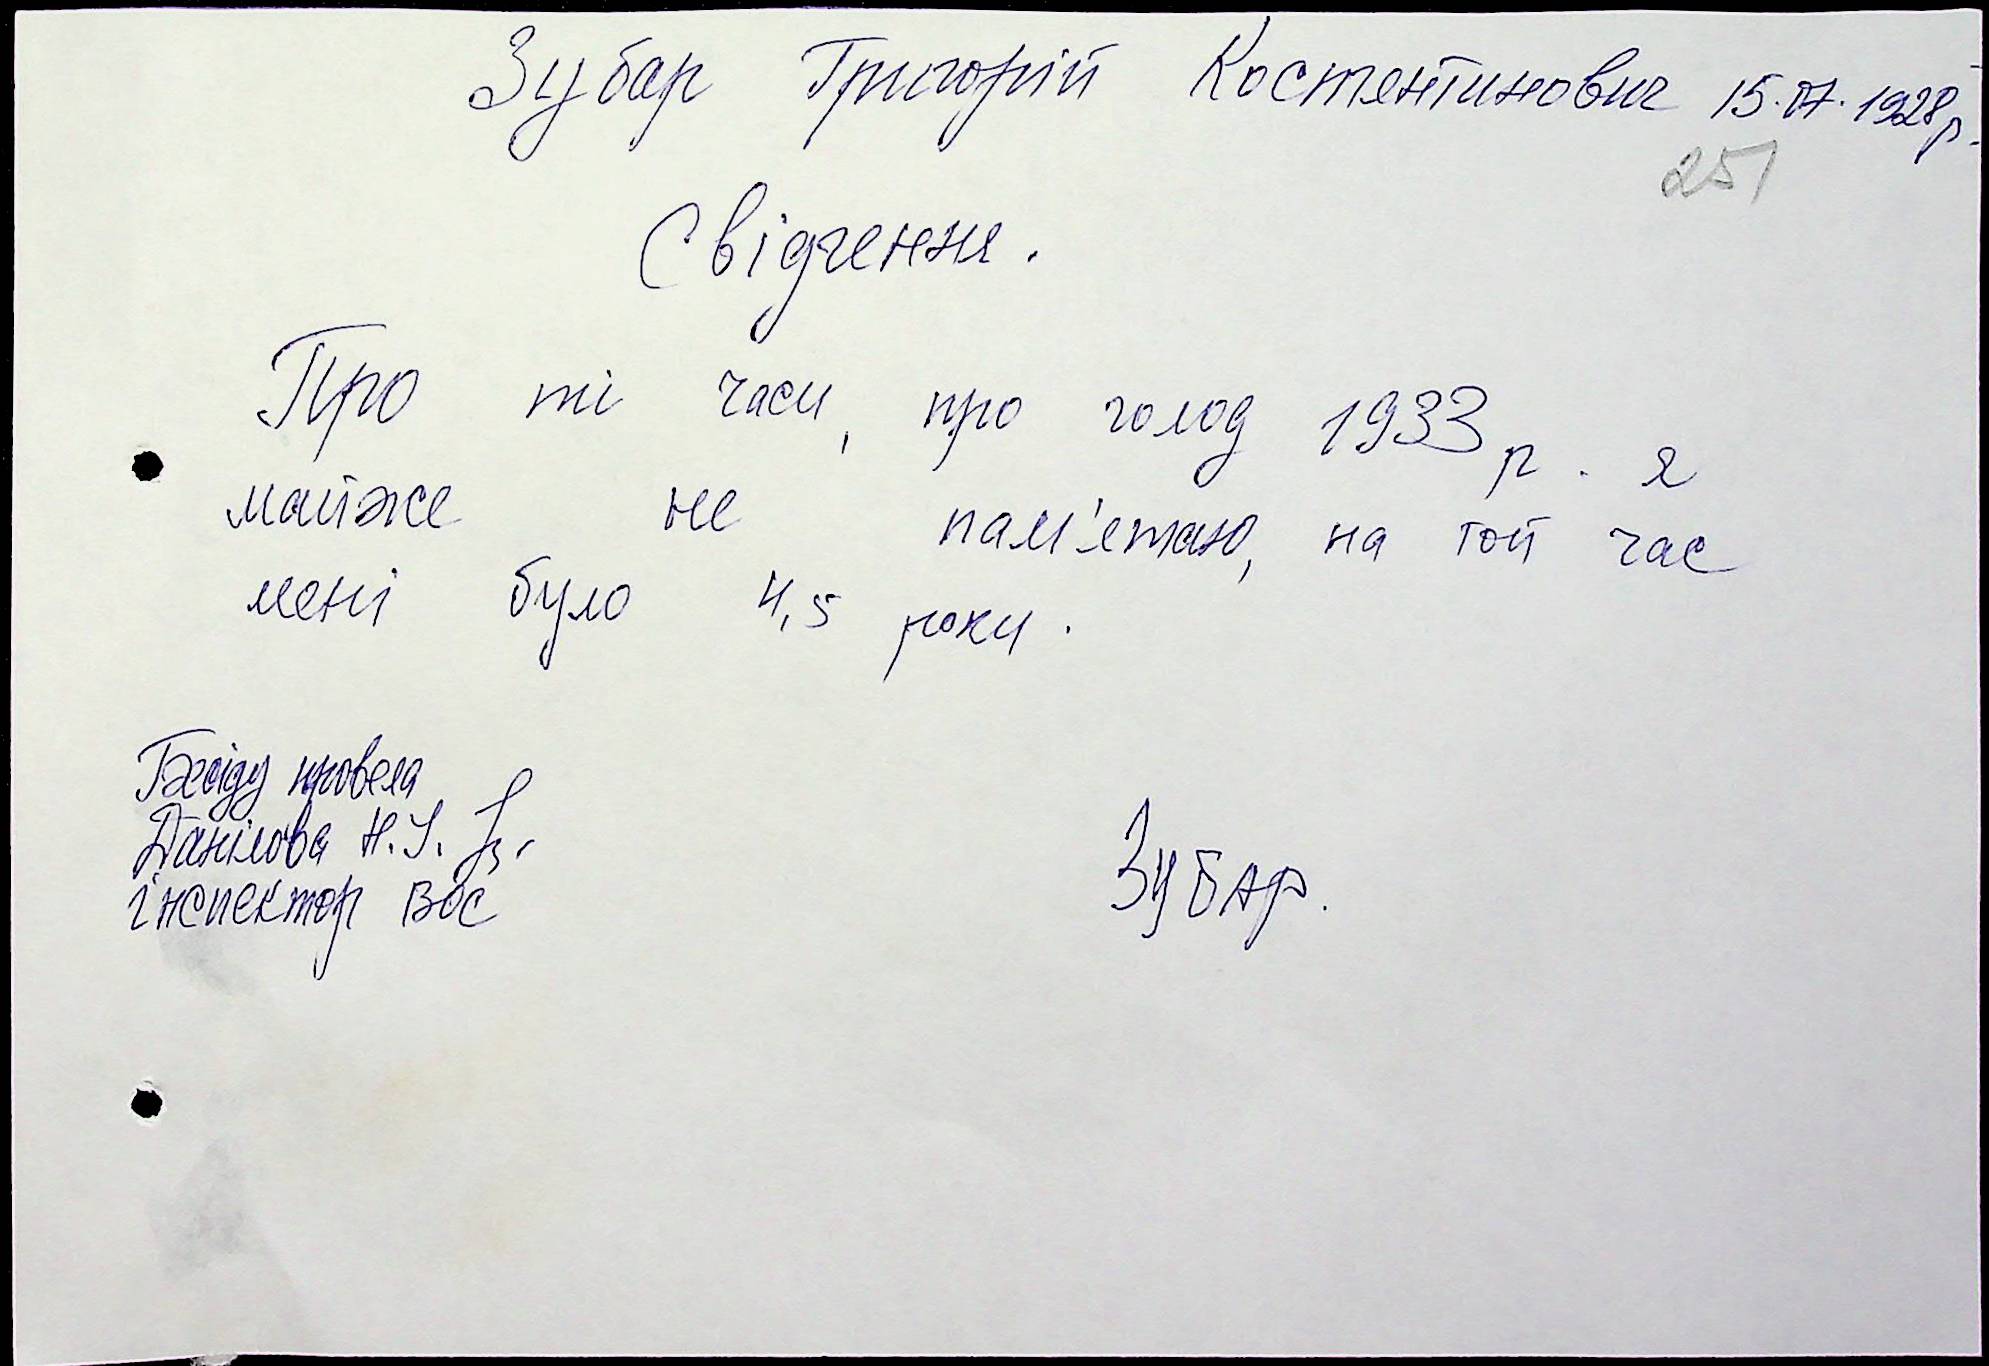 Зубар Григорій Костянтинович 15.07.1928р.
251
Свідчення.
Про ті часи, про голод 1933р. я
майже не пам'ятаю, на той час
мені було 4,5 роки.
Бесіду провела
Данілова Н.І.
інспектор ВОС
Зубар.